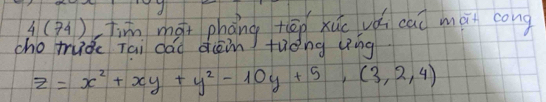 4 (74) Tìm mặt phẳng tiếp xúc với các mặt cong
cho trước Tại các điểm tương ứng
z = x² + xy + y² - 10y + 5 , (3, 2, 4)